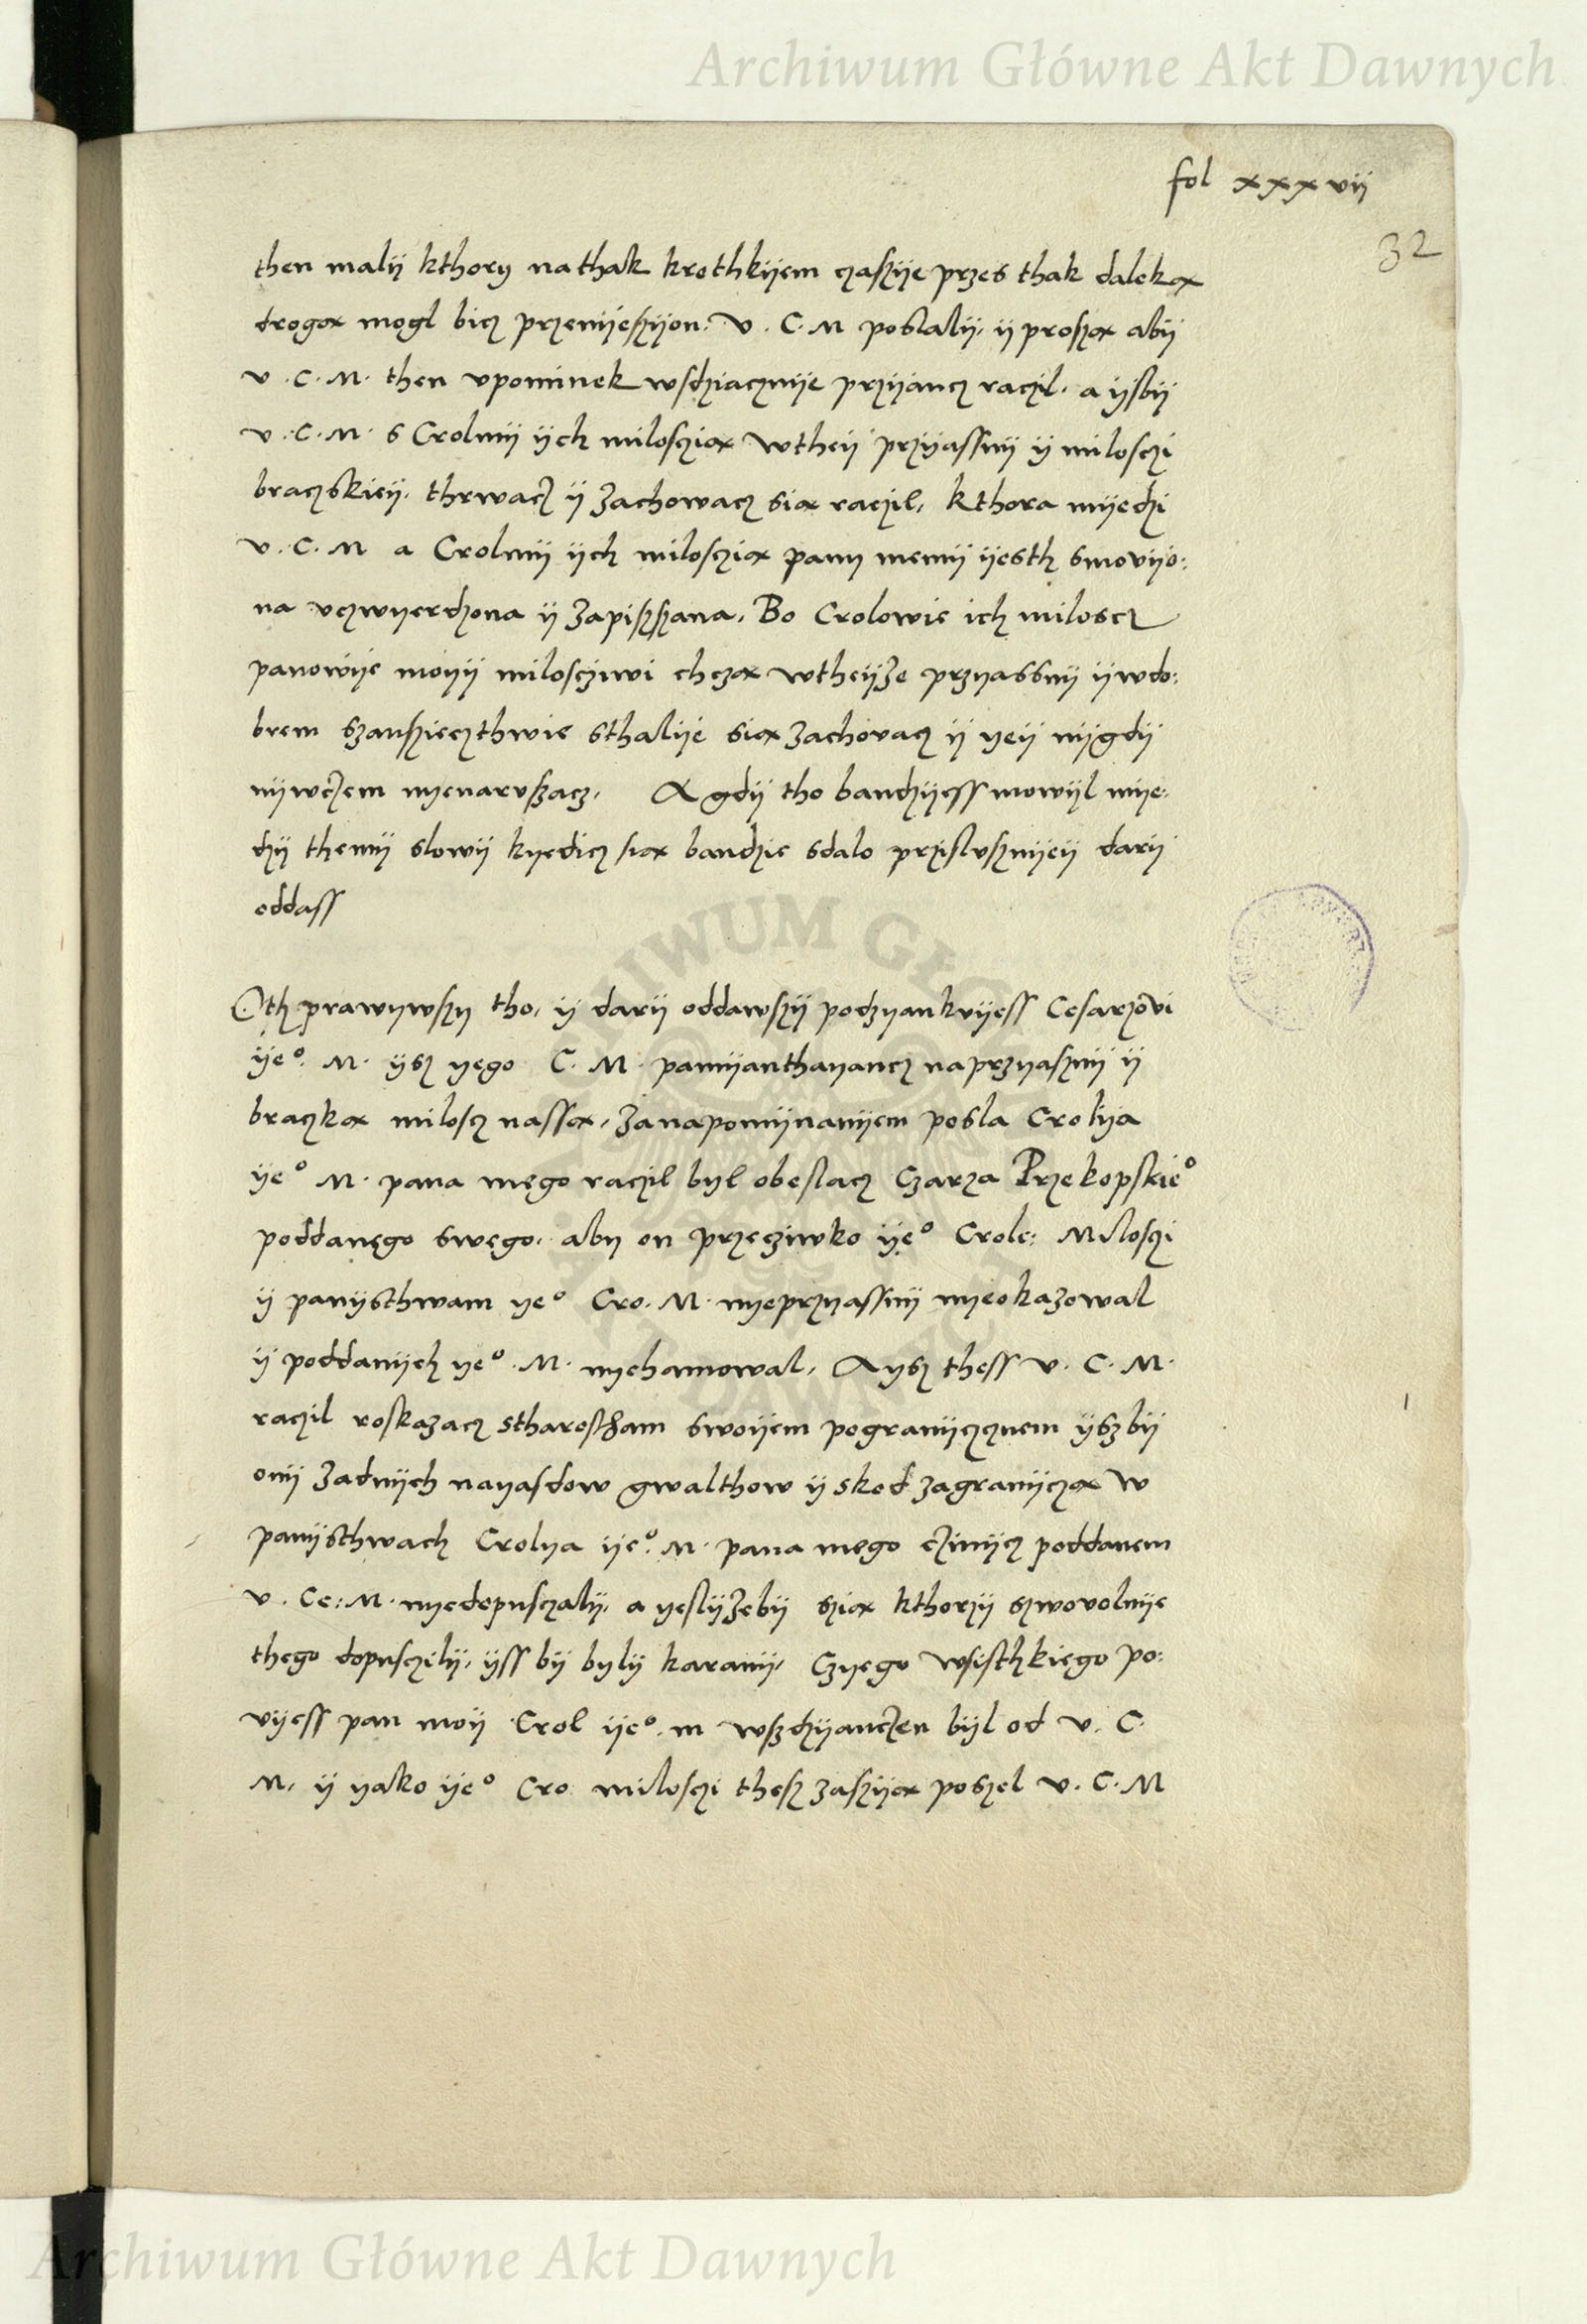 Archiwum Główne Akt Dawnych
fol xxxvii
32
then malÿ kthory nathak krothkÿem czaszÿe przes thak dalekα
drogα mogl bicz przenÿeszÿon: V. C. M poslalÿ, ÿ proszα abÿ
v. C. M. then vpominek wsdziacznÿe przÿiancz raczÿl, a ÿsbÿ
v. C. M. s Crolmÿ ÿch milosciα wtheÿ prziyassnÿ ÿ milosczi
braczskieÿ, thrwacz ÿ Zachowacz siα raczil, kthora mÿedzi
v. C. M a Crolmÿ ÿch milosciα pany memÿ ÿesth smovÿo:
na vczwyerdzona ÿ Zapiszszana, Bo Crolowie ich miloscz
panowÿe moÿÿ milosciwi chczα wtheÿZe przyassnÿ ÿwdo:
brem szanszieczthwie sthalÿe siα Zachovacz ÿ yeÿ nÿgdÿ
nÿwczem nyenarvszacz, A gdÿ tho bandzÿess mowÿl mÿe:
dzÿ themÿ slowÿ kyedicz siα bandzie sdalo przislvsznÿeÿ darÿ
oddass
Oth prawywszy tho, ÿ darÿ oddawszÿ podzyankvÿess Cesarzovi
ÿe° M. ÿsz yego C. M. pamÿanthayancz naprzyasznÿ ÿ
braczkα miloscz nassα, Zanapomÿnanÿem posla Crolÿa
ÿe° M. pana mego raczil byl obeslacz Czarza Przekopskie°
poddanego swego, aby on przecziwko ÿe° Crole: Milosczi
ÿ panÿsthwam ye° Cro. M. nyeprzyassnÿ nyeokazowal
ÿ poddanÿch ye° M. nyehamowal, A ysz thess v. C. M.
raczil roskazacz stharostham swoÿem pogranÿcznem ÿszbÿ
onÿ Zadnÿch nayasdow gwalthow ÿ skod zagranÿczα w
panÿsthwach Crolya ÿe° M. pana mego czinÿcz poddanem
v. Ce: M. nyedopusczalÿ, a yeslÿZebÿ sziα kthorzÿ szwovolnÿe
thego dopusczilÿ, ÿss bÿ bylÿ karanÿ, Czyego wsisthkiego po:
vÿess pan moÿ Crol ÿe° m wszdzÿanczen bÿl od v. C.
M, ÿ yako ÿe° Cro milosczi thesz zaszÿα poszel v. C. M
Archiwum Główne Akt Dawnych